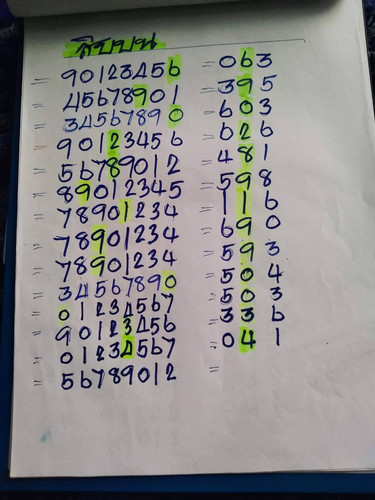 สิบบน
= 90123456 = 063
= 45678901 = 395
= 34567890 = 603
= 90123456 = 626
= 56789012 = 481
= 89012345 = 598
= 78901234 = 116
= 78901234 = 690
= 78901234 = 593
= 34567890 = 504
= 01234567 = 503
= 90123456 = 336
= 01234567 = 041
= 56789012 =